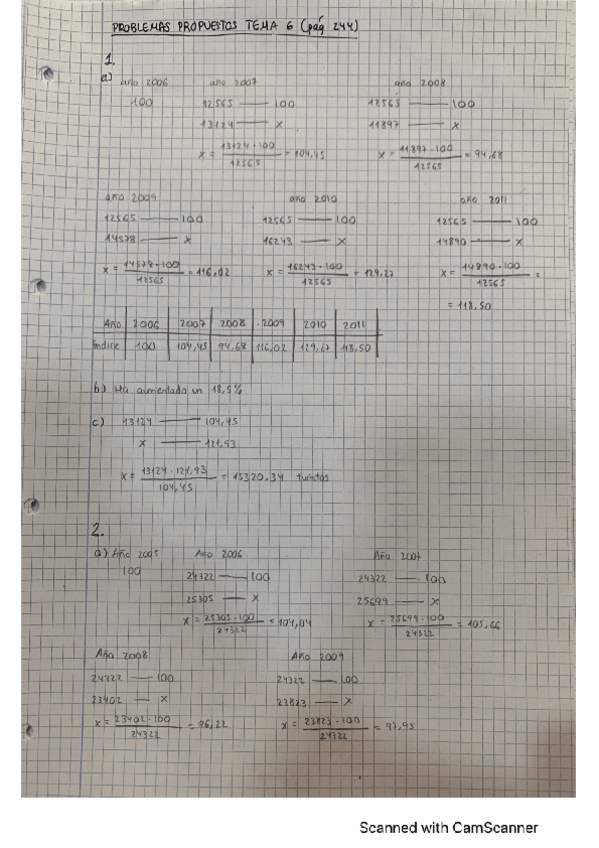 PROBLEMAS PROPUESTOS TEMA 6 (pág 244)
1.
a) año 2006 año 2007 año 2008
100 12565 — 100 12565 — 100
13124 — x 11897 — x
x = 13124·100 / 12565 = 104,45 x = 11897·100 / 12565 = 94,68
año 2009 año 2010 año 2011
12565 — 100 12565 — 100 12565 — 100
14578 — x 16243 — x 14890 — x
x = 14578·100 / 12565 = 116,02 x = 16243·100 / 12565 = 129,27 x = 14890·100 / 12565 =
= 118,50
Año 2006 2007 2008 2009 2010 2011
Índice 100 104,45 94,68 116,02 129,27 118,50
b) Ha aumentado un 18,5%
c) 13124 — 104,45
x — 121,93
x = 13124·121,93 / 104,45 = 15320,34 turistas
2.
a) Año 2005 Año 2006 Año 2007
100 24322 — 100 24322 — 100
25305 — x 25699 — x
x = 25305·100 / 24322 = 104,04 x = 25699·100 / 24322 = 105,66
Año 2008 Año 2009
24322 — 100 24322 — 100
23402 — x 23823 — x
x = 23402·100 / 24322 = 96,22 x = 23823·100 / 24322 = 97,95
Scanned with CamScanner